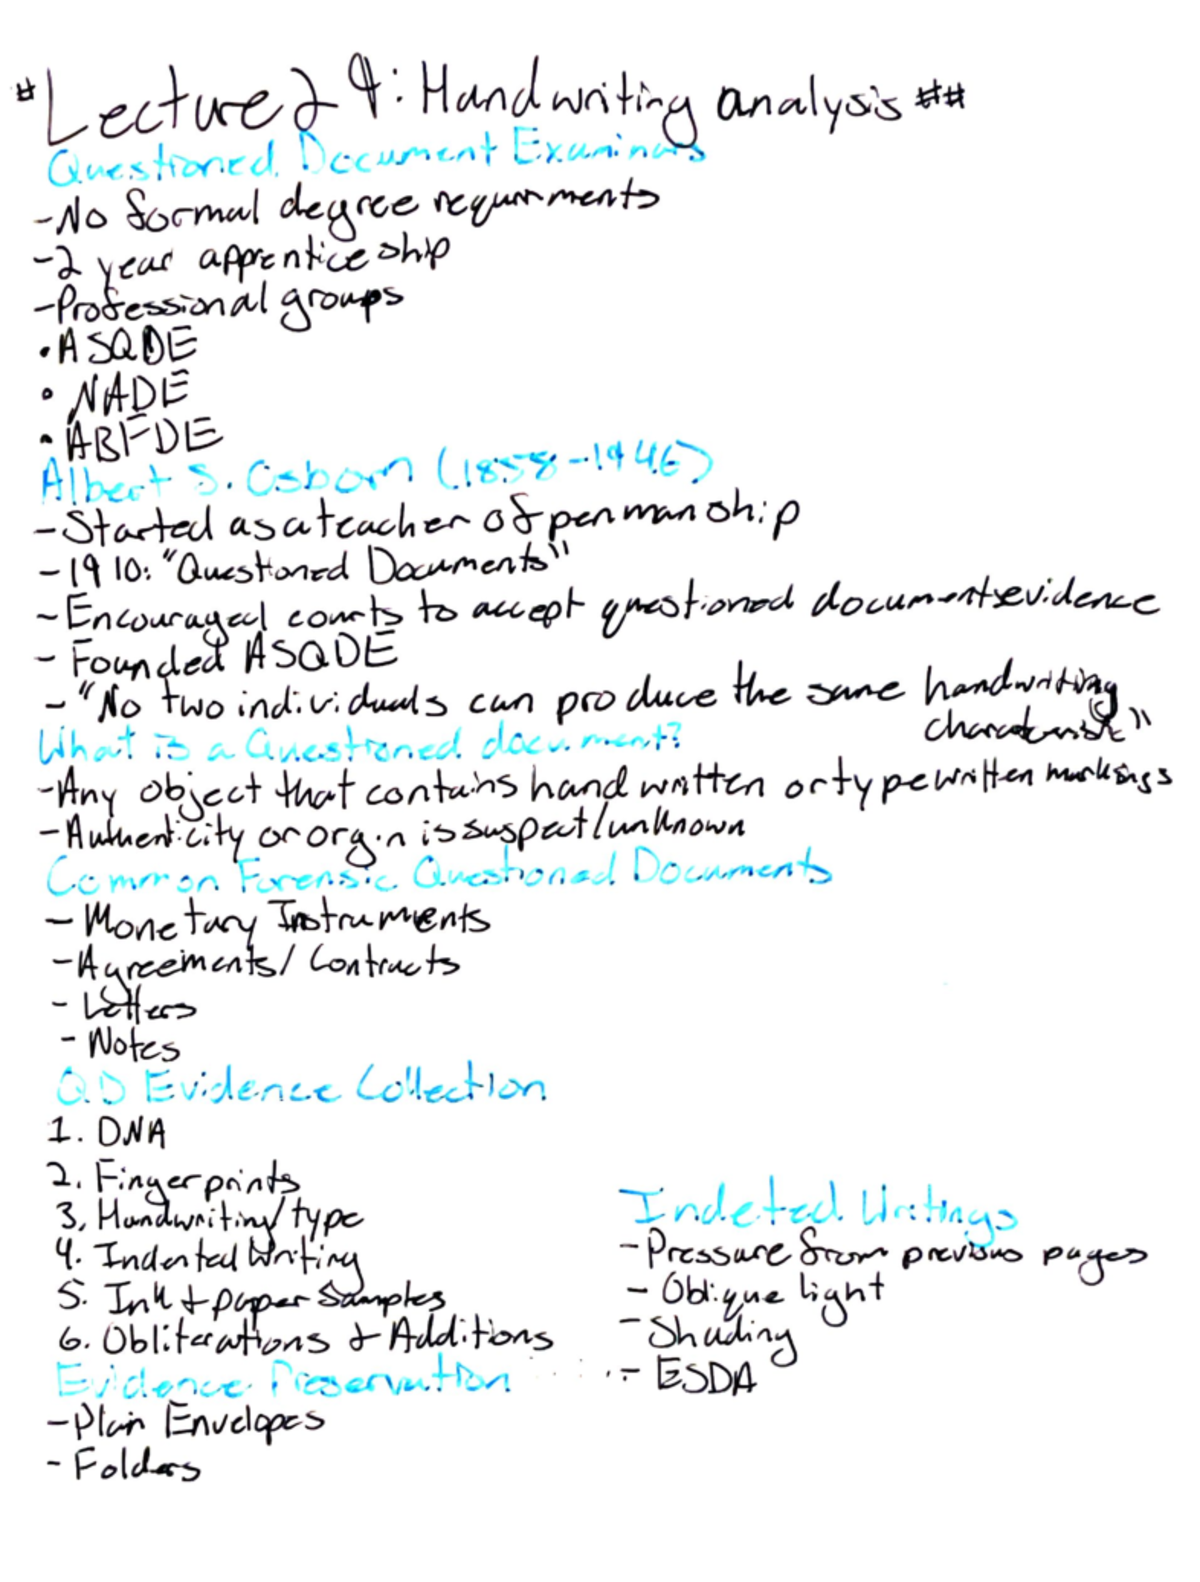 # Lecture 24: Handwriting analysis ##
Questioned Document Examiners
- No formal degree requirments
- 2 year apprenticeship
- Professional groups
• ASQDE
• NADE
• ABFDE
Albert S. Osborn (1858-1946)
- Started as a teacher of penmanship
- 1910: "Questioned Documents"
- Encouraged courts to accept questioned documents evidence
- Founded ASQDE
- "No two individuals can produce the same handwriting
characteristic"
What is a Questioned document?
- Any object that contains handwritten or typewritten markings
- Authenticity or orgin is suspect/unknown
Common Forensic Questioned Documents
- Monetary Instruments
- Agreements/Contracts
- Letters
- Notes
QD Evidence Collection
1. DNA
2. Fingerprints
3. Handwriting/type
4. Indented Writing
5. Ink + paper Samples
6. Obliterations + Additions
Evidence Preservation
- Plain Envelopes
- Folders
Indeted Writings
- Pressure from previous pages
- Oblique light
- Shading
- ESDA